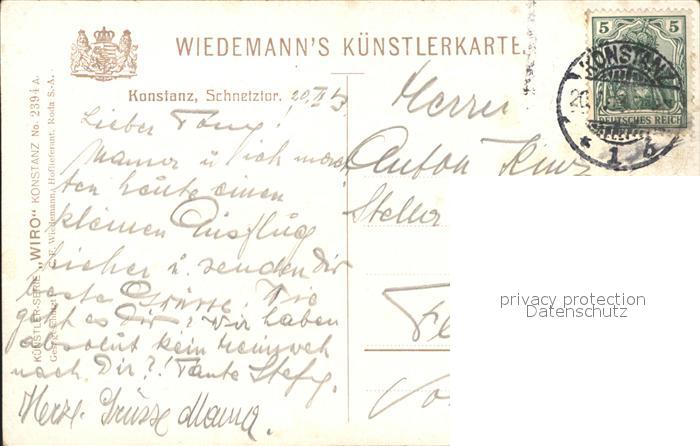 WIEDEMANN'S KÜNSTLERKARTE.
Konstanz, Schnetztor.
Lieber Tony!
Mama u. ich mach
ten heute einen
kleinen Ausflug
hieher u. senden Dir
beste Grüsse. Wie
geht es Dir? Wir haben
absolut kein Heimweh
nach Dir?! Tante Stefy.
Herzl. Grüsse Mama.
KÜNSTLER-SERIE „WIRO“ KONSTANZ No. 2394 A.
Wiedemann, Hoflieferant, Roda S.-A.
Herrn
Anton
5 5
DEUTSCHES REICH
KONSTANZ
* 1
privacy protection
Datenschutz